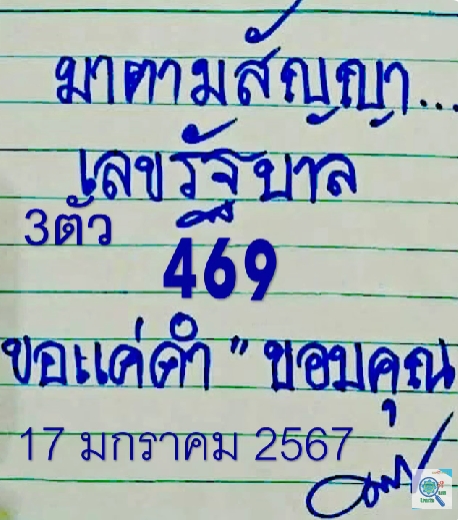 มาตามสัญญา...
เลขรัฐบาล
3ตัว
469
ขอแค่คำ "ขอบคุณ
17 มกราคม 2567